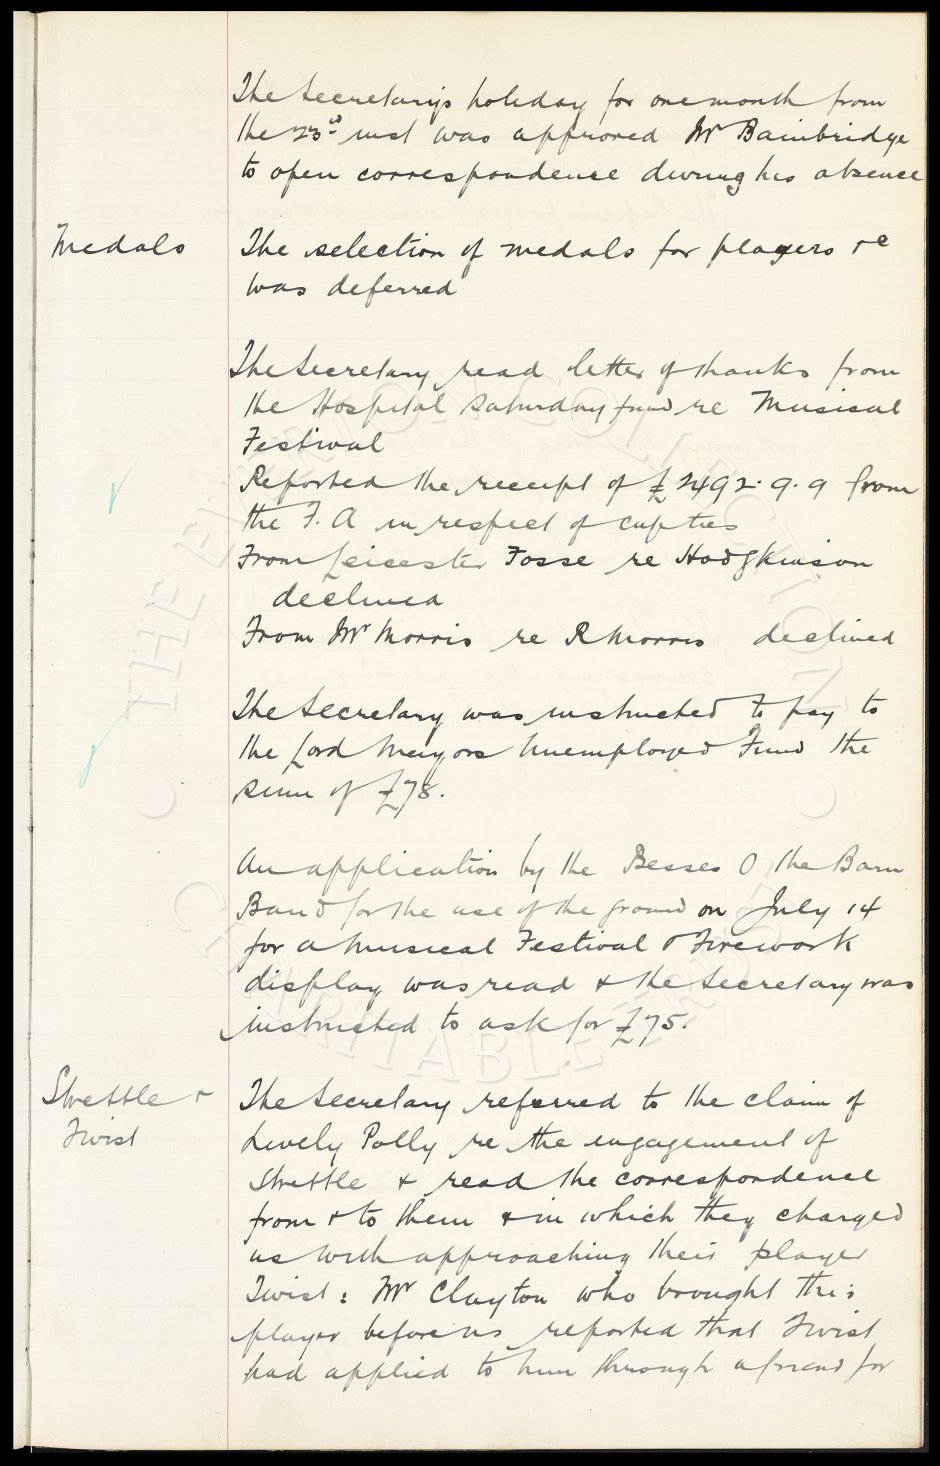 The Secretarys holiday for one month from
the 23rd inst was approved Mr Bainbridge
to open correspondence during his absence
Medals
The selection of medals for players &c
was deferred
The Secretary read letter of thanks from
the Hospital Saturday fund re Musical
Festival
Reported the receipt of £2492.9.9 from
the F.A in respect of cup ties
From Leicester Fosse re Hodgkinson
declined
From Mr Morris re R Morris declined
The Secretary was instructed to pay to
the Lord Mayors Unemployed Fund the
sum of £78.
An application by the Besses O the Barn
Band for the use of the ground on July 14
for a Musical Festival & Firework
display was read & the Secretary was
instructed to ask for £75.
Strettle &
Twist
The Secretary referred to the claim of
Lively Polly re the engagement of
Strettle & read the correspondence
from & to them & in which they charged
us with approaching their player
Twist: Mr Clayton who brought this
player before us reported that Twist
had applied to him through a friend for
THE EVERTON COLLECTION
CHARITABLE TRUST